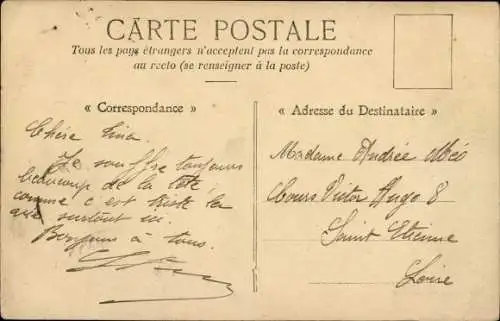 CARTE POSTALE
Tous les pays étrangers n'acceptent pas la correspondance
au recto (se renseigner à la poste)
« Correspondance »
Chère Lina.
Je souffre toujours
beaucoup de la tête,
comme c'est triste la
vie surtout ici.
Bonjour à tous.
« Adresse du Destinataire »
Madame Andrée
Cours Victor Hugo 8
Saint Etienne
Loire